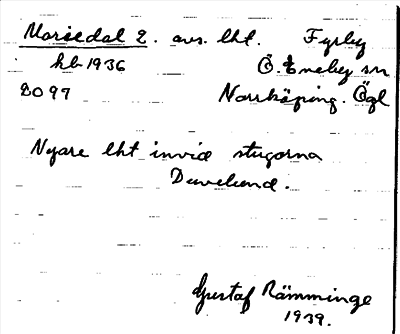 Mariedal 2. avs. lht. Fyrby
hb 1936 Ö. Eneby sn
8099 Norrköping. Ögl
Nyare lht invid stugorna
Duvelund.
Gustaf Rämminge
1939.